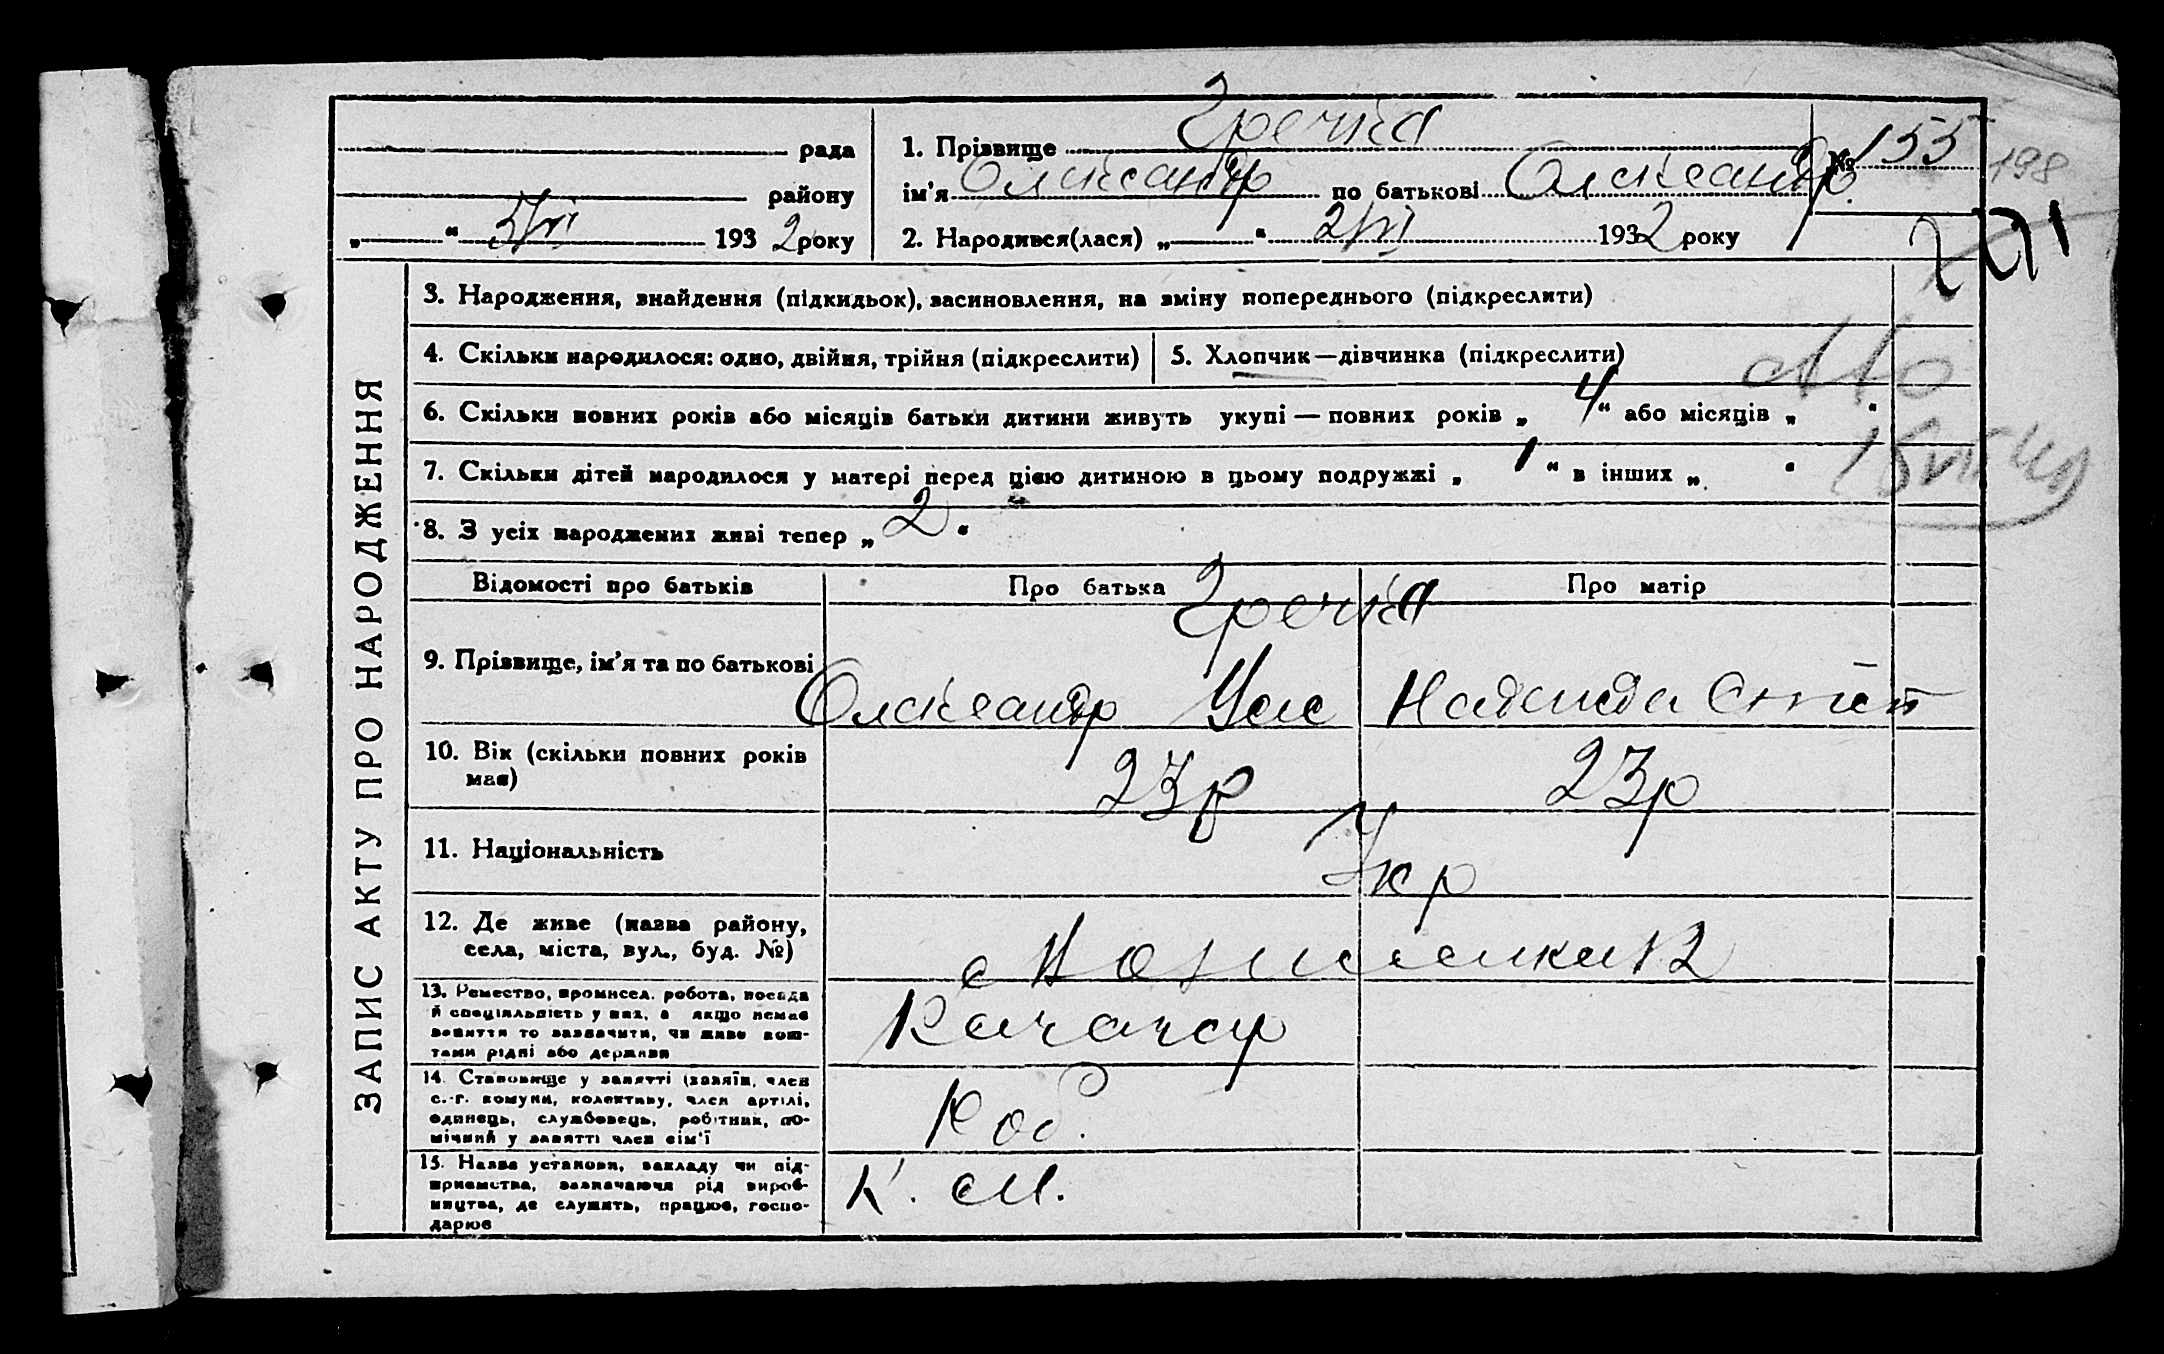 рада
району
„ “ 5/VI 1932 року
1. Прізвище Гречка
ім'я Олександр по батькові Олександр.
2. Народився(лася) „ “ 2/VI 1932 року
№ 155
198
271
ЗАПИС АКТУ ПРО НАРОДЖЕННЯ
3. Народження, знайдення (підкидьок), засиновлення, на зміну попереднього (підкреслити)
4. Скільки народилося: одно, двійня, трійня (підкреслити)
5. Хлопчик—дівчинка (підкреслити)
6. Скільки повних років або місяців батьки дитини живуть укупі — повних років „ 4 “ або місяців „ “
7. Скільки дітей народилося у матері перед цією дитиною в цьому подружжі „ 1 “ в інших „ “
8. З усіх народжених живі тепер „ 2 “
Відомості про батьків
Про батька
Про матір
9. Прізвище, ім'я та по батькові
Гречка
Олександр
Надежда
10. Вік (скільки повних років має)
23р
23р
11. Національність
Укр
12. Де живе (назва району,
села, міста, вул., буд. №)
с
13. Ремество, промисел, робота, посада
й спеціяльність у них, а якщо немає
заняття то зазначити, чи живе кош-
тами рідні або держави
14. Становище у занятті (хазяїн, член
с.-г. комуни, колективу, член артілі,
одинець, службовець, робітник, по-
мічний у занятті член сім'ї
Роб.
15. Назва установи, закладу чи під-
приємства, зазначаючи рід вироб-
ництва, де служить, працює, госпо-
дарює
К. М.